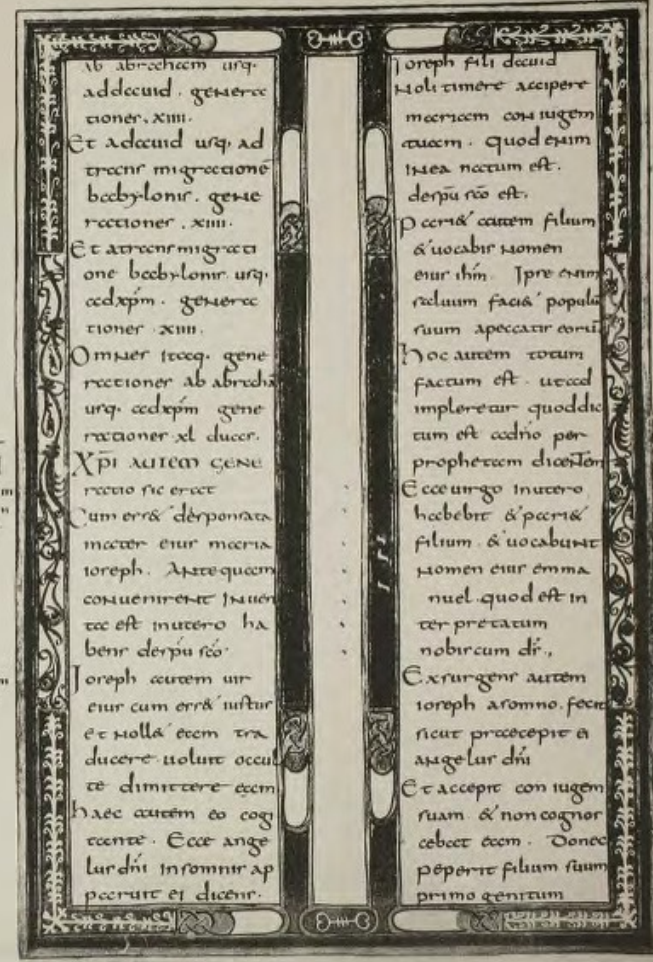 ab abraham usq·
addauid · genera
tiones · xiiii ·
Et adauid usq· ad
trans migrationē
babylonis · gene
rationes · xiiii ·
Et atransmigrati
one babylonis usq·
adxp̄m · genera
tiones · xiiii ·
Omnes itaq· gene
rationes ab abrahā
usq· adxp̄m gene
rationes xl duae·
Xp̄i autem gene
ratio sic erat
Cum ess& desponsata
mater eius maria
ioseph · Antequam
convenirent Inven
ta est inutero ha
bens despū scō·
Joseph autem vir
eius cum ess& iustus
et noll& eam tra
ducere uoluit occul
te dimittere eam
haec autem eo cogi
tante · Ecce ange
lus dn̄i insomnis ap
paruit ei dicens·
Joseph fili dauid
Noli timere accipere
mariam con iugem
tuam · Quod enim
INea natum est ·
despū scō est ·
Pari& autem filium
& uocabis nomen
eius ihm̄ · Ipse enim
saluum faci& populū
suum apeccatis eorū
hoc autem totum
factum est · utad
impleretur quoddic
tum est adn̄o per
prophetam dicentem
Ecce uirgo inutero
habebit & pari&
filium · & uocabunt
nomen eius emma
nuel · quod est in
ter pretatum
nobiscum ds̄ ·,
Exsurgens autem
ioseph asomno · fecit
sicut praecepit ei
angelus dn̄i
Et accepit con iugem
suam · & non cognos
cebat eam · Donec
peperit filium suum
primo genitum